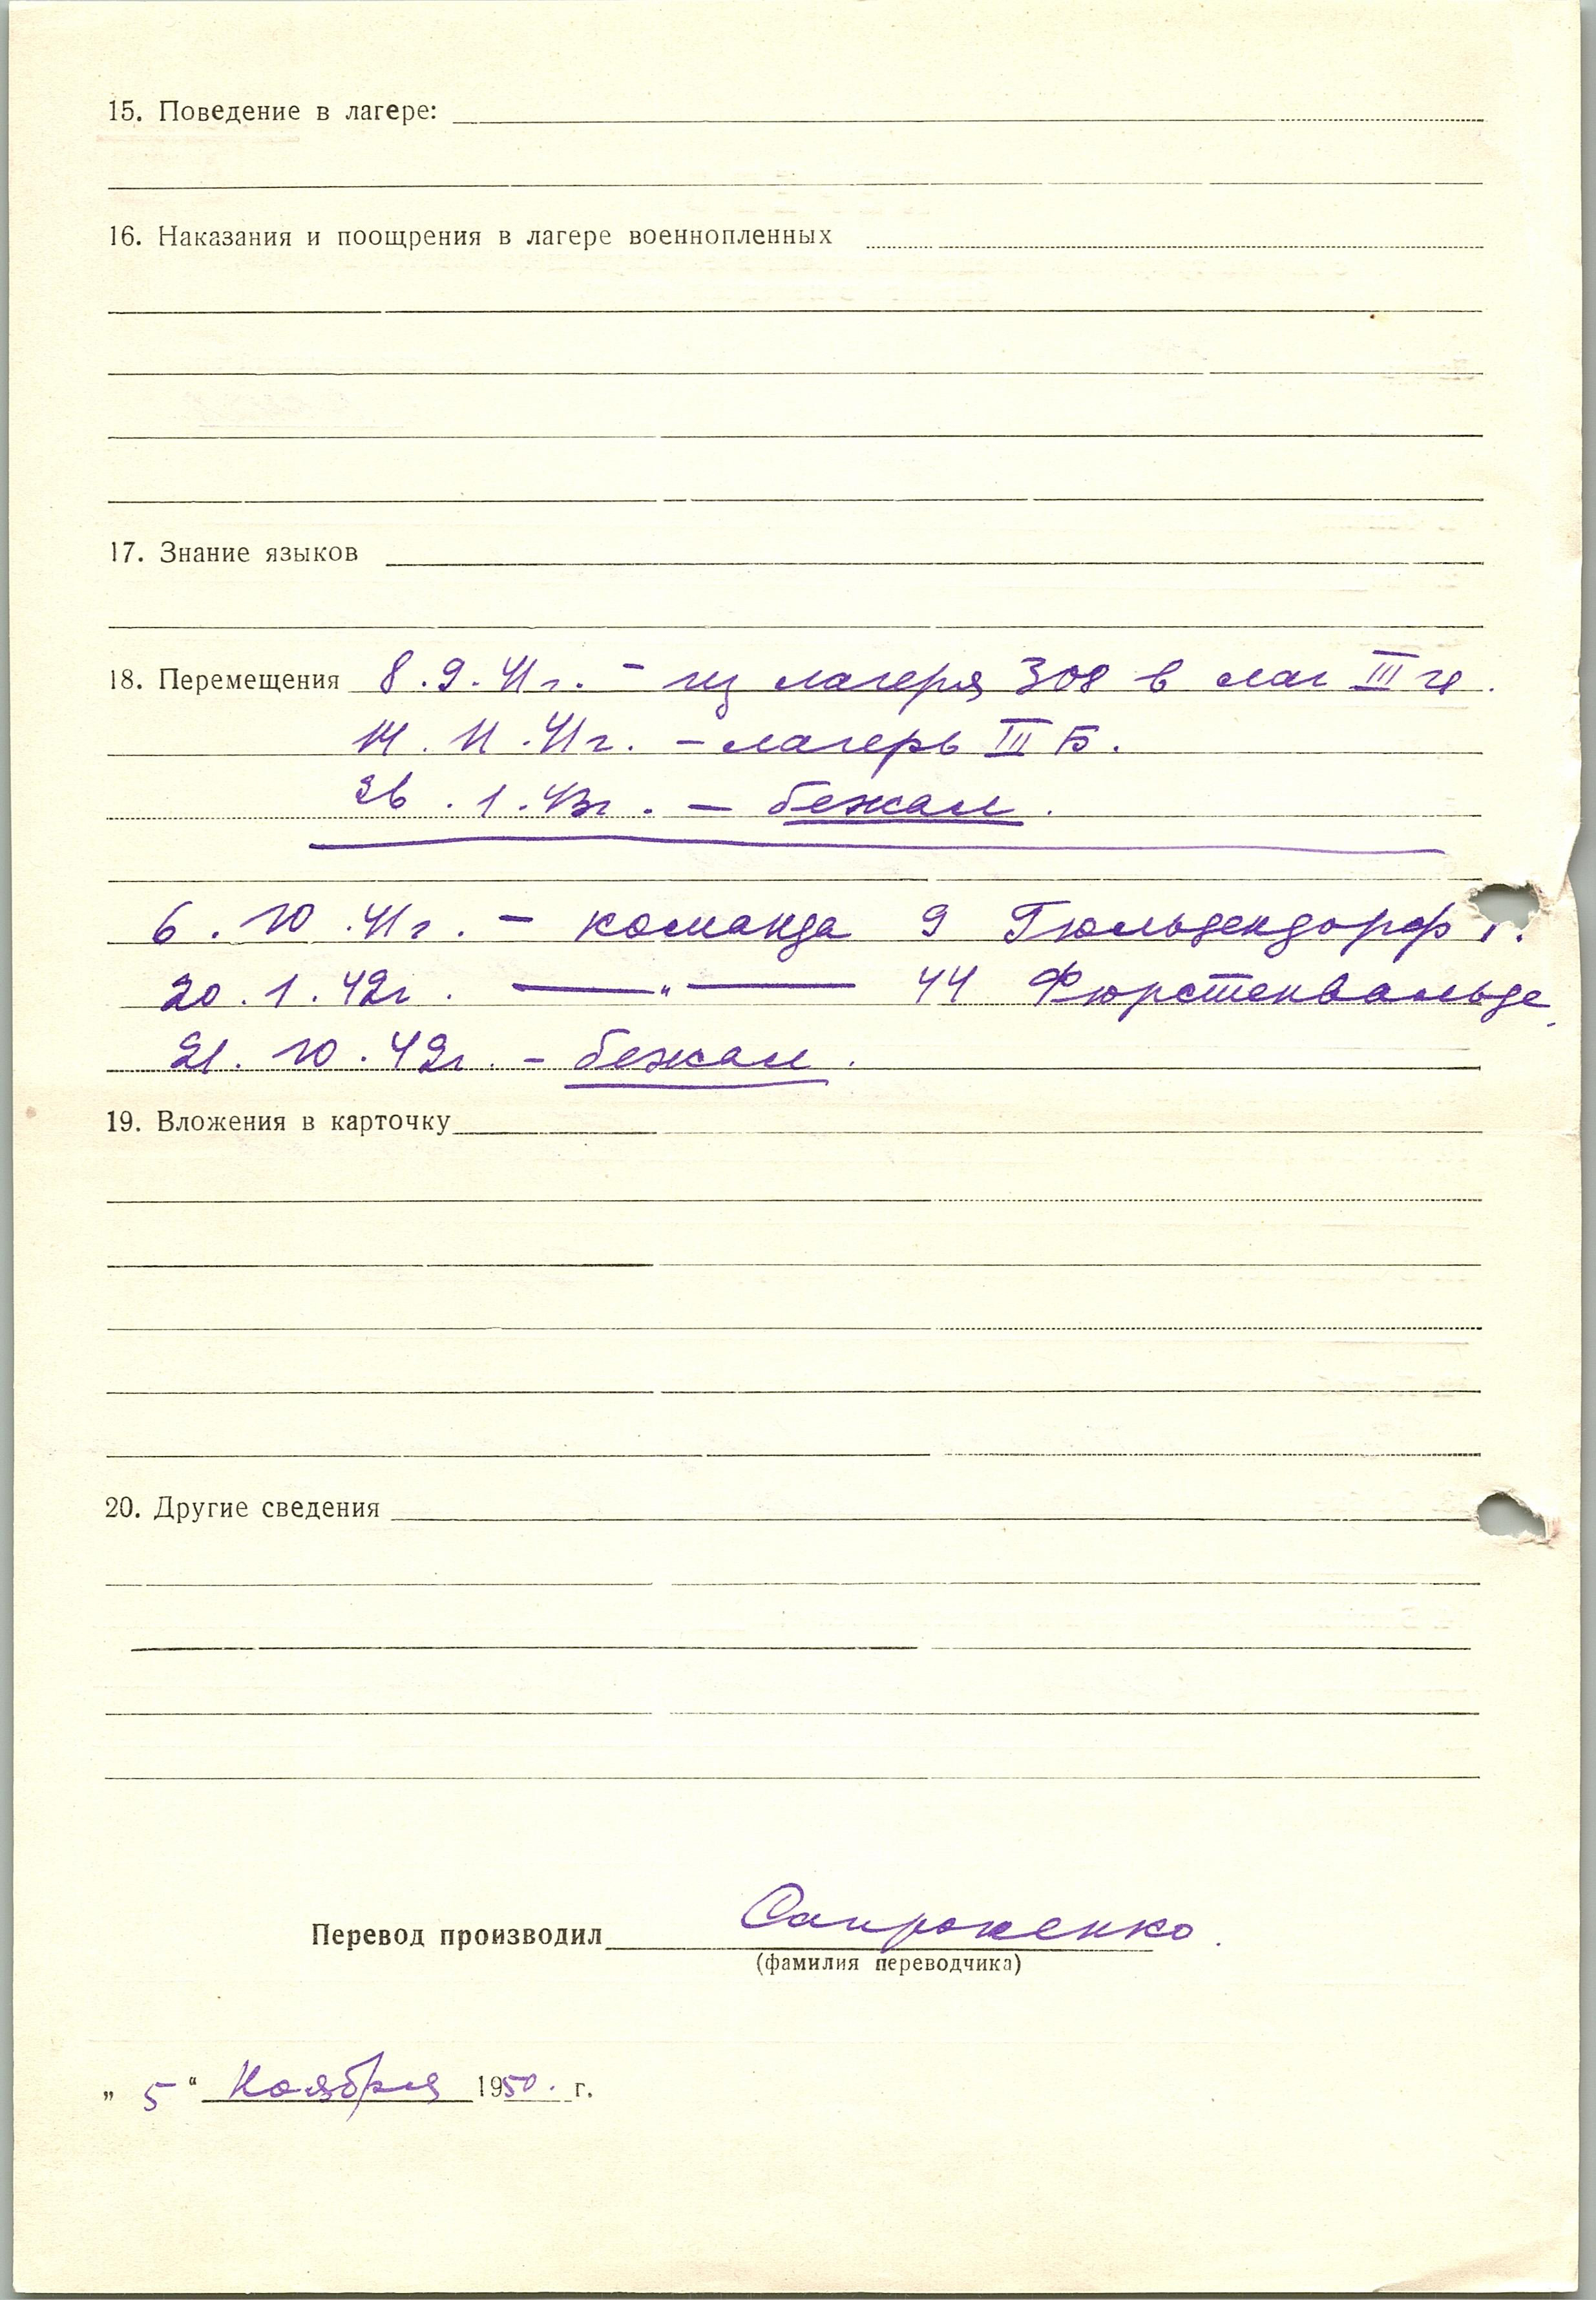 15. Поведение в лагере:
16. Наказания и поощрения в лагере военнопленных
17. Знание языков
18. Перемещения 8.9.41г. – из лагеря 308 в лаг III
14.11.41г. – лагерь III Б.
26.1.43г. – бежал.
6.10.41г. – команда 9 Гюльдендорф
20.1.42г. —„— 44 Фюрстенвальде
21.10.42г. – бежал.
19. Вложения в карточку
20. Другие сведения
Перевод производил
(фамилия переводчика)
„5“ Ноября 1950. г.